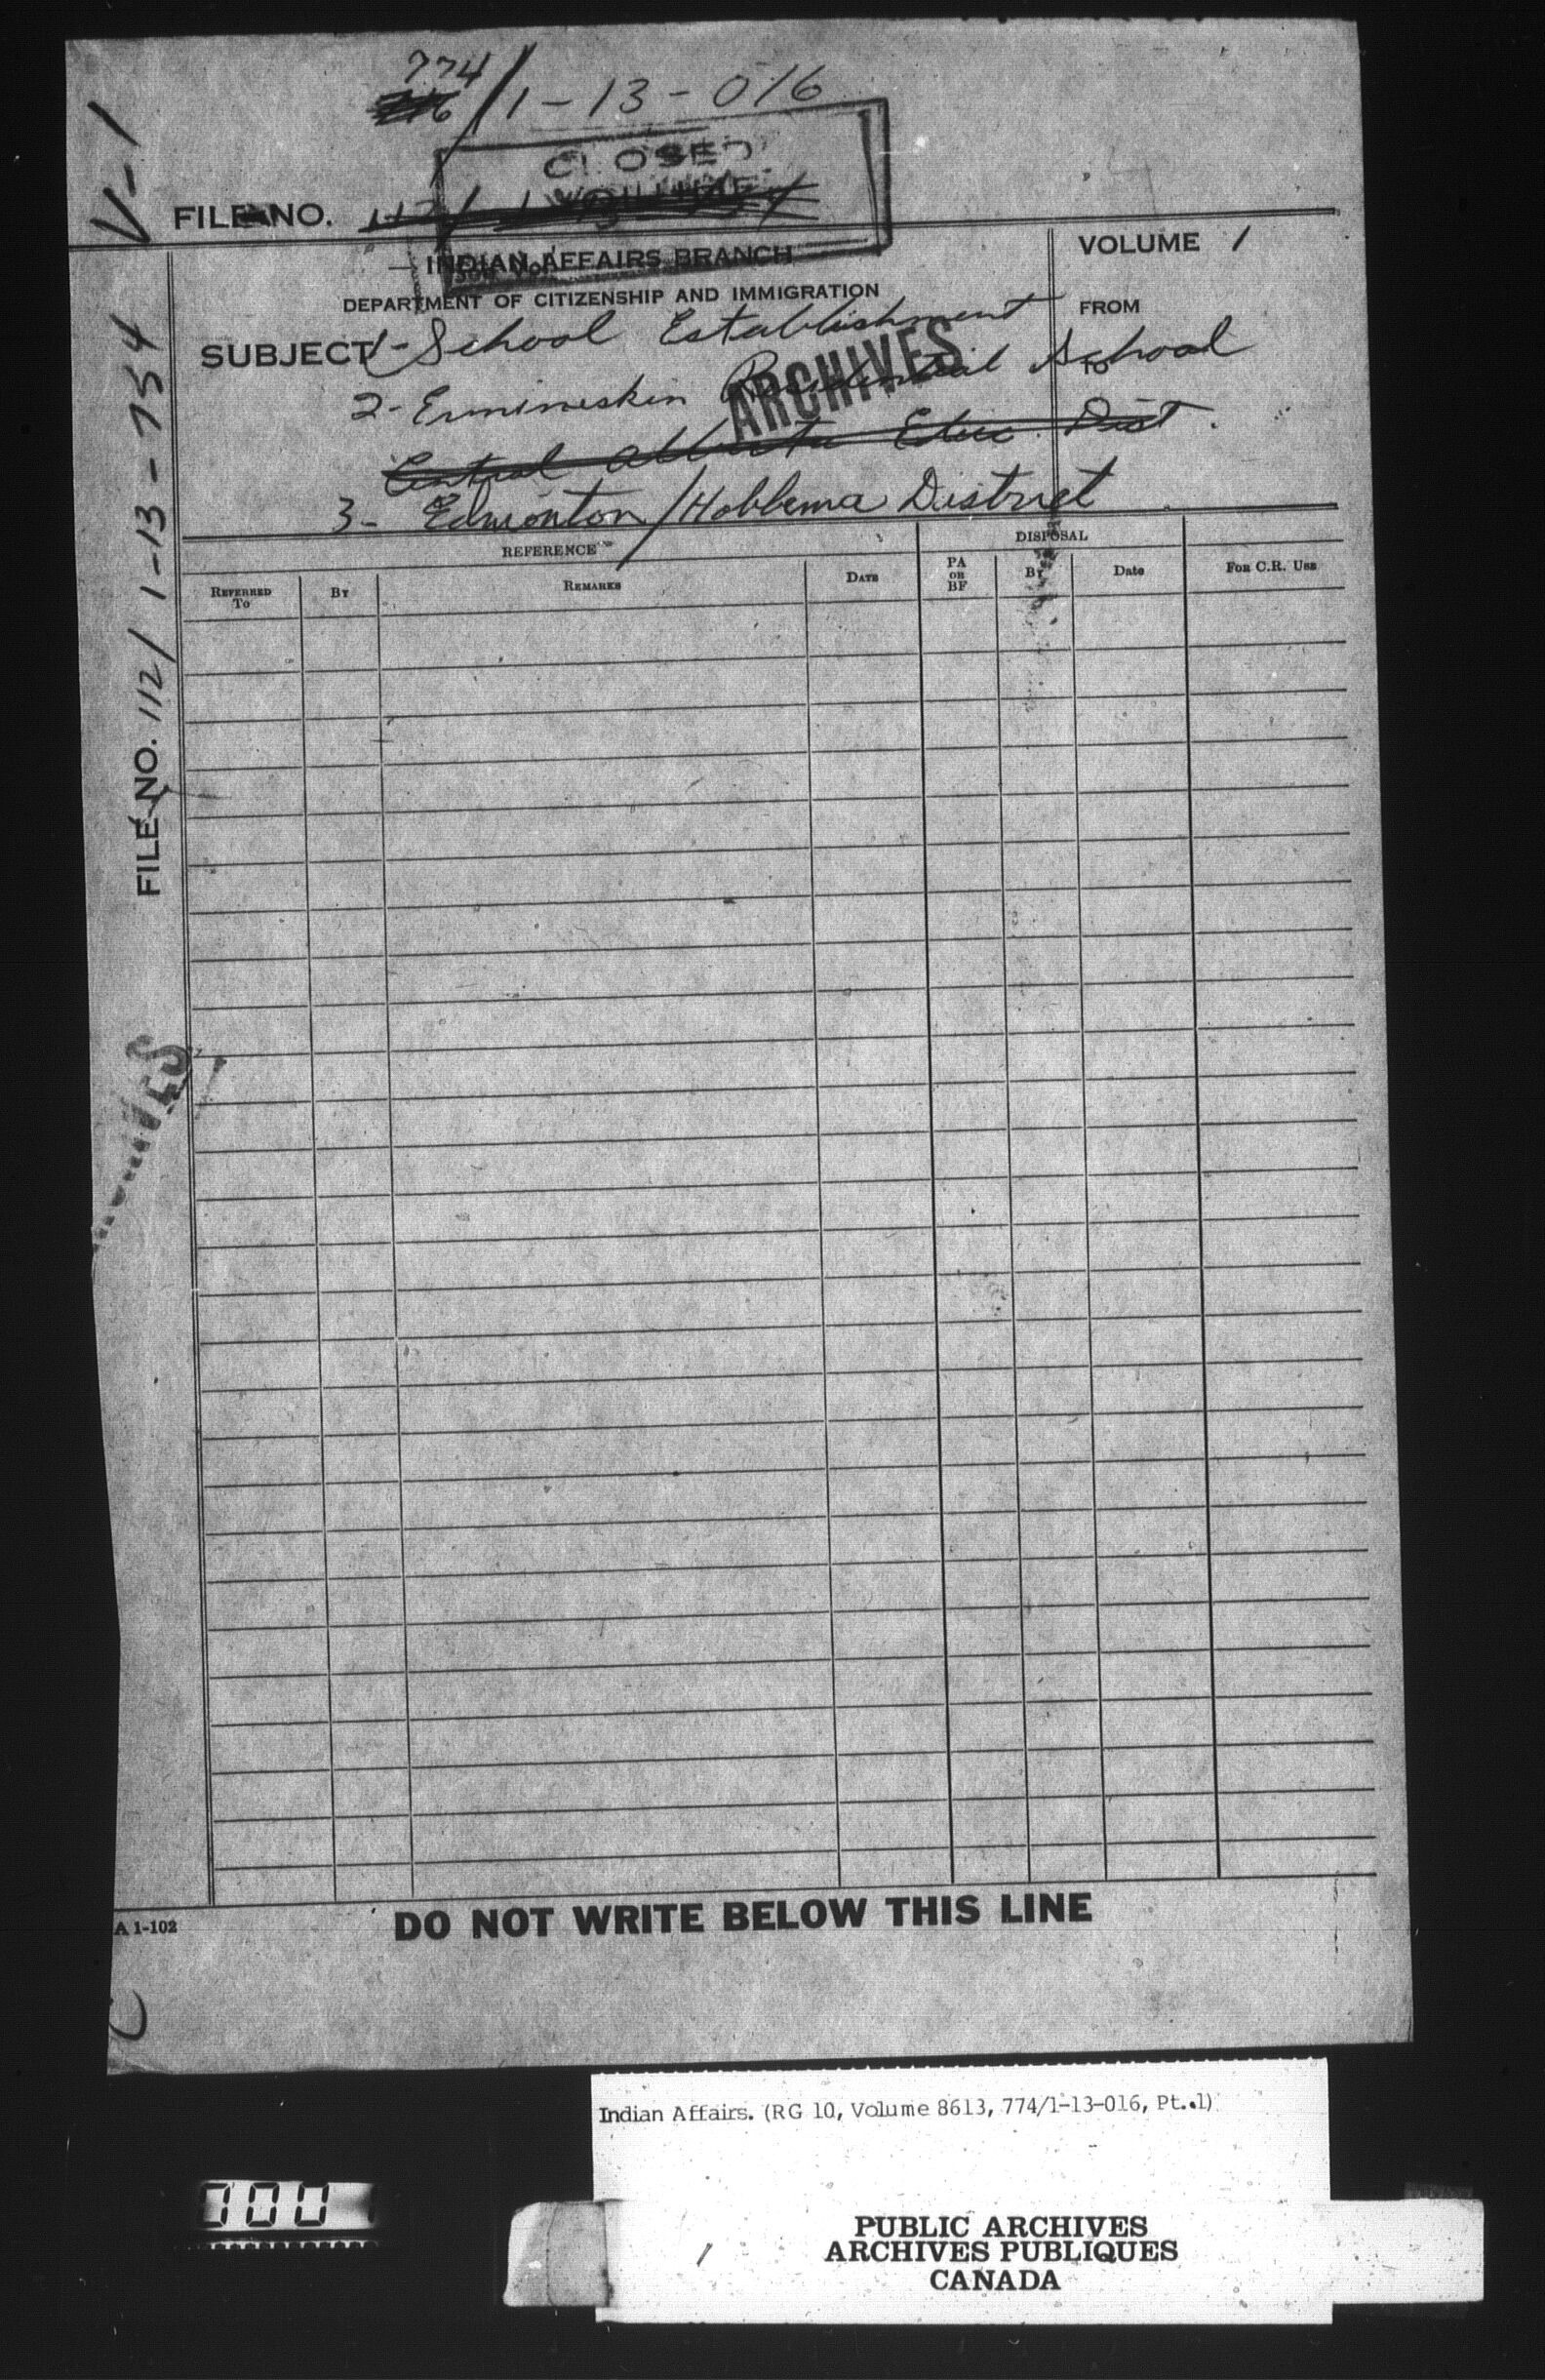 774/1-13-016
V-1
CLOSED
VOLUME
FILE NO.
INDIAN AFFAIRS BRANCH
DEPARTMENT OF CITIZENSHIP AND IMMIGRATION
VOLUME 1
FROM
TO
SUBJECT 1- School Establishment
2- Ermineskin Residential School
ARCHIVES
Central Alberta Educ. Dist.
3- Edmonton/Hobbema District
FILE NO. 112/1-13-754
REFERENCE
DISPOSAL
REFERRED TO
BY
REMARKS
DATE
PA OR BF
BY
Date
FOR C.R. USE
A 1-102
DO NOT WRITE BELOW THIS LINE
Indian Affairs. (RG 10, Volume 8613, 774/1-13-016, Pt. 1)
PUBLIC ARCHIVES
ARCHIVES PUBLIQUES
CANADA